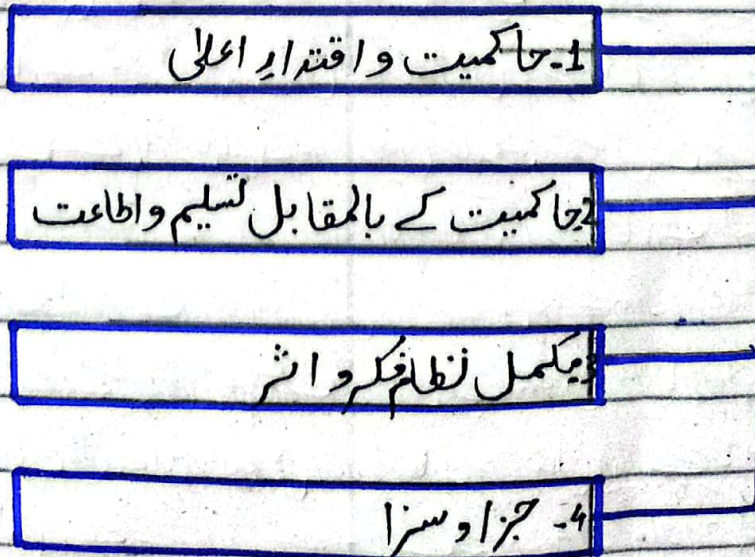 1۔ حاکمیت و اقتدارِ اعلیٰ
2۔ حاکمیت کے بالمقابل تسلیم و اطاعت
3۔ مکمل نظام فکر و اثر
4۔ جزا و سزا